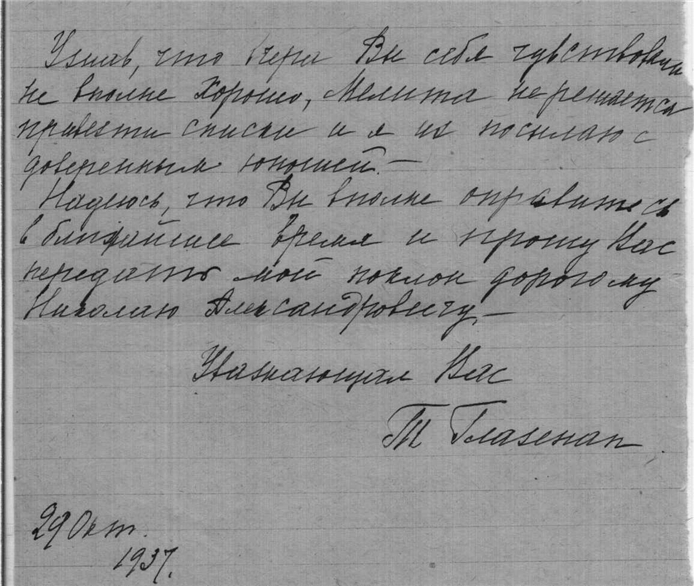 Узнав, что вчера Вы себя чувствовали
не вполне хорошо, Мелита не решается
привезти списки и я их посылаю с
доверенным юношей. —
Надеюсь, что Вы вполне оправитесь
в ближайшее время и прошу Вас
передать мой поклон дорогому
Николаю Александровичу. —
Уважающая Вас
Т Глазенап
29 Окт.
1937.